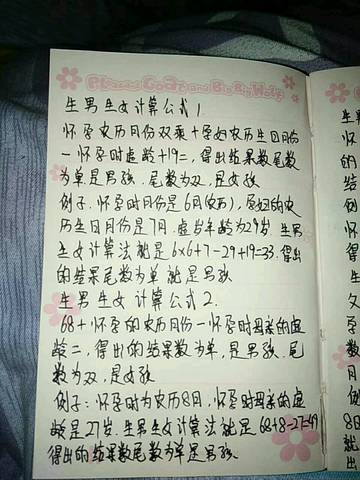 Pleasant Goat and Big Big Wolf
生男生女计算公式1.
怀孕农历月份双乘+孕妇农历生日月份
-怀孕时虚龄+19=,得出结果数尾数
为单是男孩.尾数为双,是女孩
例子.怀孕时月份是6月(农历),孕妇的农
历生日月份是7月.虚岁年龄为29岁 生男
生女计算法就是6×6+7-29+19=33.得出
的结果尾数为单 就是男孩
生男生女 计算公式2.
68+怀孕的农历月份-怀孕时母亲的虚
龄=,得出的结果数为单,是男孩.尾
数为双,是女孩
例子:怀孕时为农历8月,怀孕时母亲的虚
龄是27岁.生男生女计算法就是68+8-27=49
得出的结果数尾数为单是男孩